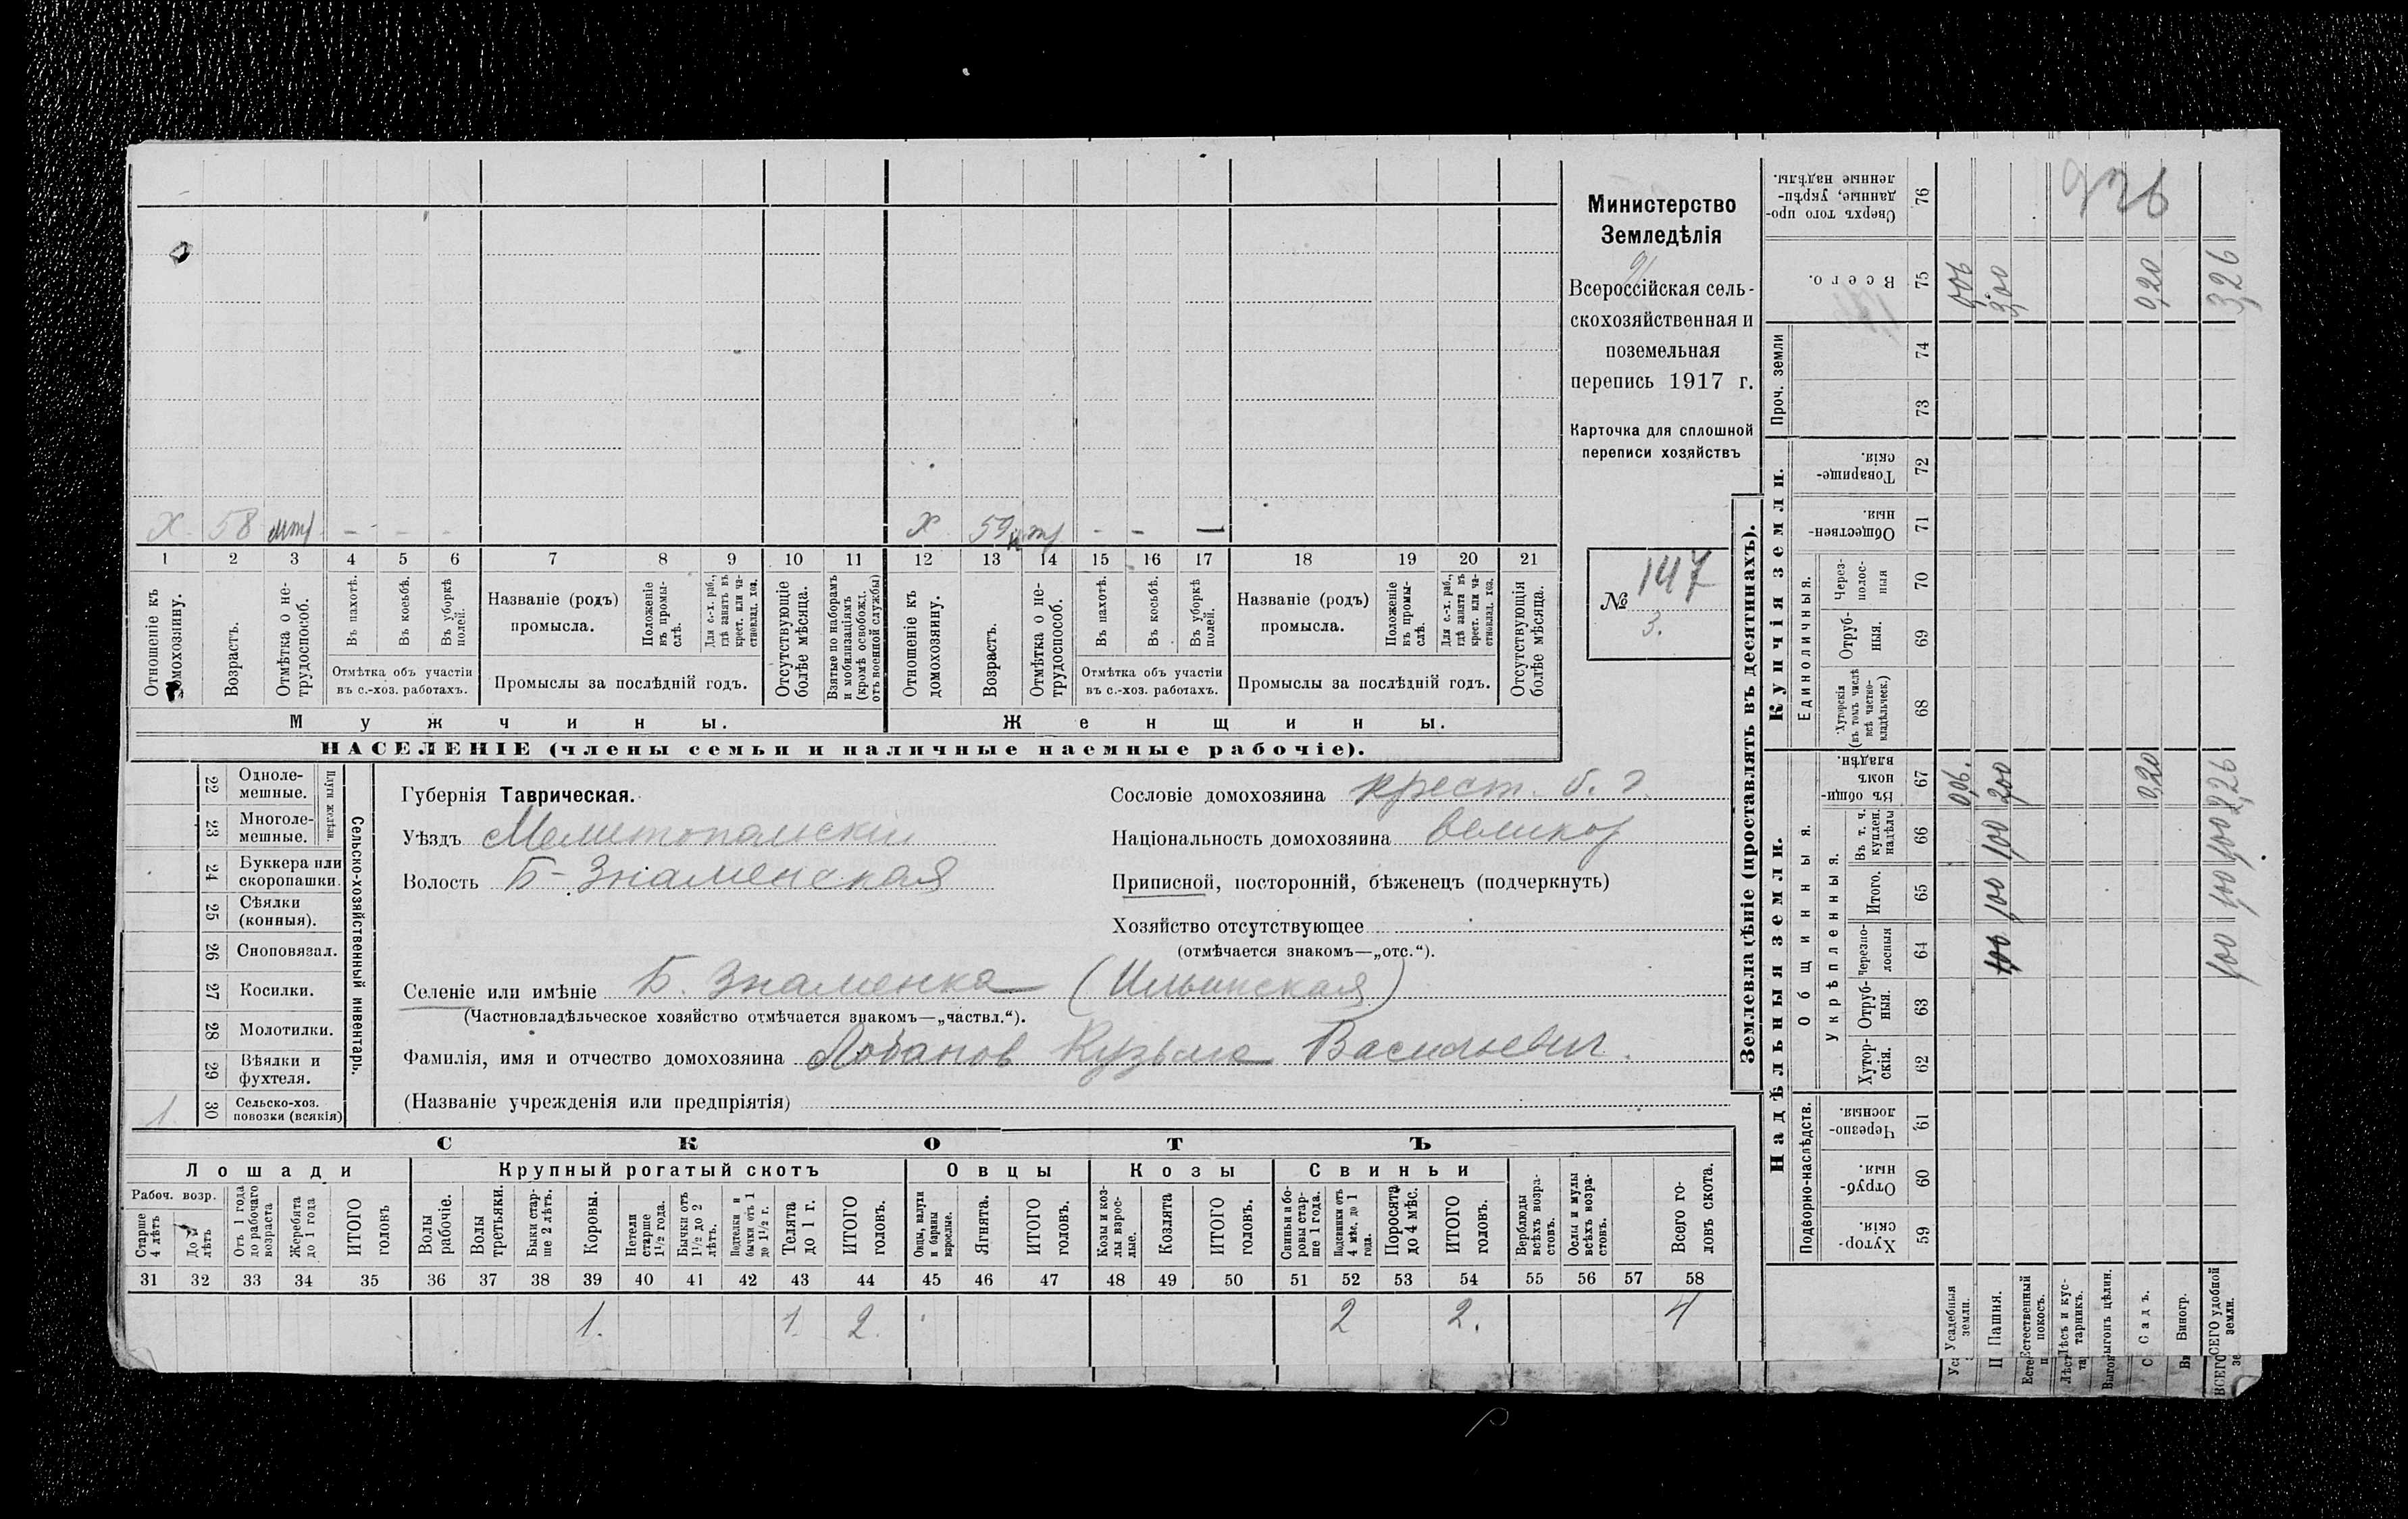 Министерство
Земледѣлія
Всероссійская сель-
скохозяйственная и
поземельная
перепись 1917 г.
Карточка для сплошной
переписи хозяйствъ
№ 147
3.
Х 58 - - -
Х 59 - - -
1 2 3 4 5 6 7 8 9 10 11 12 13 14 15 16 17 18 19 20 21
Отношеніе къ домохозяину.
Возрастъ.
Отмѣтка о не-
трудоспособ.
Въ пахотѣ.
Въ косьбѣ.
Въ уборкѣ
полей.
Отмѣтка объ участіи
въ с.-хоз. работахъ.
Названіе (родъ)
промысла.
Положеніе
въ промы-
слѣ.
Для с.-х. раб.,
гдѣ занятъ въ
крест. или ча-
стновлад. хоз.
Промыслы за послѣдній годъ.
Отсутствующіе
болѣе мѣсяца.
Взятые по наборамъ
и мобилизаціямъ
(кромѣ освобожд.
отъ военной службы)
Отношеніе къ
домохозяину.
Возрастъ.
Отмѣтка о не-
трудоспособ.
Въ пахотѣ.
Въ косьбѣ.
Въ уборкѣ
полей.
Отмѣтка объ участіи
въ с.-хоз. работахъ.
Названіе (родъ)
промысла.
Положеніе
въ промы-
слѣ.
Для с.-х. раб.,
гдѣ занята въ
крест. или ча-
стновлад. хоз.
Промыслы за послѣдній годъ.
Отсутствующія
болѣе мѣсяца.
Мужчины.
Женщины.
НАСЕЛЕНІЕ (члены семьи и наличные наемные рабочіе).
22 Одноле-
мешные.
23 Многоле-
мешные.
Плуги желѣзн.
24 Буккера или
скоропашки.
25 Сѣялки
(конныя).
26 Сноповязал.
27 Косилки.
28 Молотилки.
29 Вѣялки и
фухтеля.
1 30 Сельско-хоз.
повозки (всякія)
Сельско-хозяйственный инвентарь.
Губернія Таврическая.
Уѣздъ Мелитопольскій
Волость Б-Знаменская
Сословіе домохозяина крест. б. г.
Національность домохозяина великор
Приписной, посторонній, бѣженецъ (подчеркнуть)
Хозяйство отсутствующее
(отмѣчается знакомъ—„отс.“).
Селеніе или имѣніе Б. Знаменка (Ильинская)
(Частновладѣльческое хозяйство отмѣчается знакомъ—„частвл.“).
Фамилія, имя и отчество домохозяина Лобанов Кузьма Васильевич.
(Названіе учрежденія или предпріятія)
СКОТЪ
Лошади
Крупный рогатый скотъ
Овцы
Козы
Свиньи
Рабоч. возр.
Старше
4 лѣтъ
До 4
лѣтъ
Отъ 1 года
до рабочаго
возраста
Жеребята
до 1 года
ИТОГО
головъ
Волы
рабочіе.
Волы
третьяки.
Быки стар-
ше 2 лѣтъ.
Коровы.
Нетели
старше
1½ года.
Бычки отъ
1½ до 2
лѣтъ.
Подтелки и
бычки отъ 1
до 1½ г.
Телята
до 1 г.
ИТОГО
головъ.
Овцы, валухи
и бараны
взрослые.
Ягнята.
ИТОГО
головъ.
Козы и коз-
лы взрос-
лые.
Козлята
ИТОГО
головъ.
Свиньи и бо-
ровы стар-
ше 1 года.
Подсвинки отъ
4 мѣс. до 1
года.
Поросята
до 4 мѣс.
ИТОГО
головъ.
Верблюды
всѣхъ возра-
стовъ.
Ослы и мулы
всѣхъ возра-
стовъ.
Всего го-
ловъ скота.
31 32 33 34 35 36 37 38 39 40 41 42 43 44 45 46 47 48 49 50 51 52 53 54 55 56 57 58
1. 1 2. 2 2. 4
Землевладѣніе (проставлять въ десятинахъ).
Сверхъ того про-
данные, укрѣп-
ленные надѣлы.
76
Всего.
75 0,06 3,00 0,20 3,26
Проч. земли
74
73
Купчія земли.
Товарище-
скія.
72
Обществен-
ныя.
71
Единоличныя.
Через-
полос-
ныя
70
Отруб-
ныя.
69
Хуторскія
(въ томъ числѣ
всѣ частно-
владѣльческ.)
68
Надѣльныя земли.
Общинныя.
Въ общи-
номъ
владѣн.
67 0,06. 2,00 0,20 2,26
Укрѣпленныя.
Въ т. ч.
куплен.
надѣлы
66 1,00 1,00
Итого.
65 1,00 1,00
Черезпо-
лосныя
64 1,00 1,00
Отруб-
ныя.
63
Хутор-
скія.
62
Подворно-наслѣдств.
Черезпо-
лосныя.
61
Отруб-
ныя.
60
Хутор-
скія.
59
Усадебныя
земли.
Пашня.
Естественный
покосъ.
Лѣсъ и кус-
тарникъ.
Выгонъ цѣлин.
Садъ.
Виногр.
ВСЕГО удобной
земли.